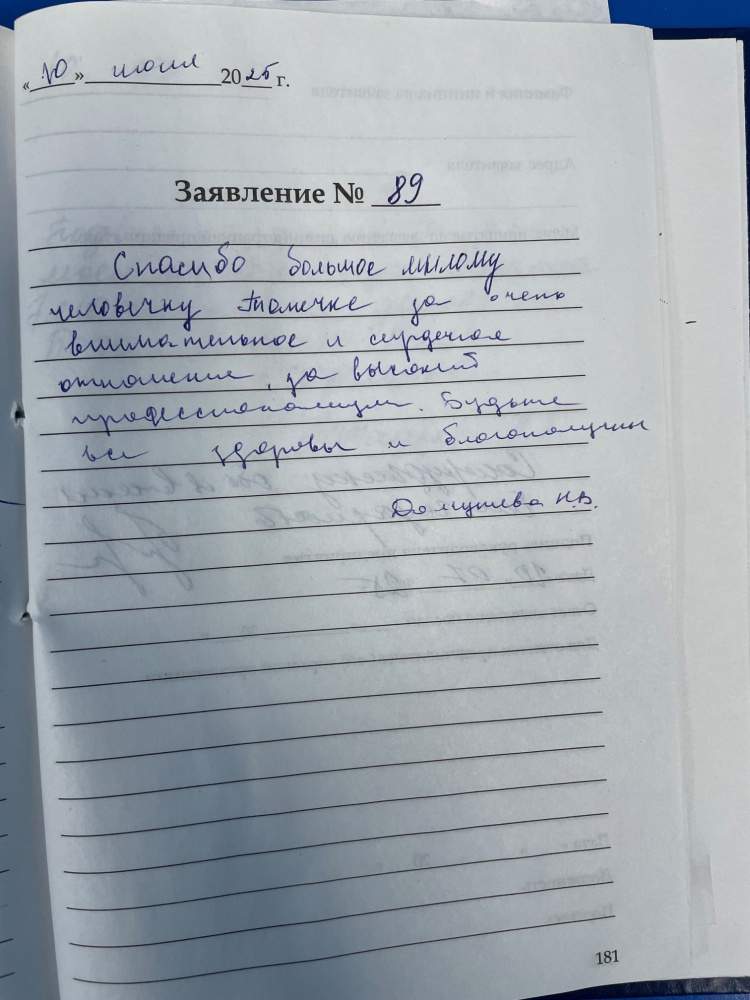 «10» июля 2025 г.
Заявление № 89
Спасибо большое милому
человечку Томечке за очень
внимательное и сердечное
отношение, за высокий
профессионализм. Будьте
все здоровы и благополучны
Н.В.
181